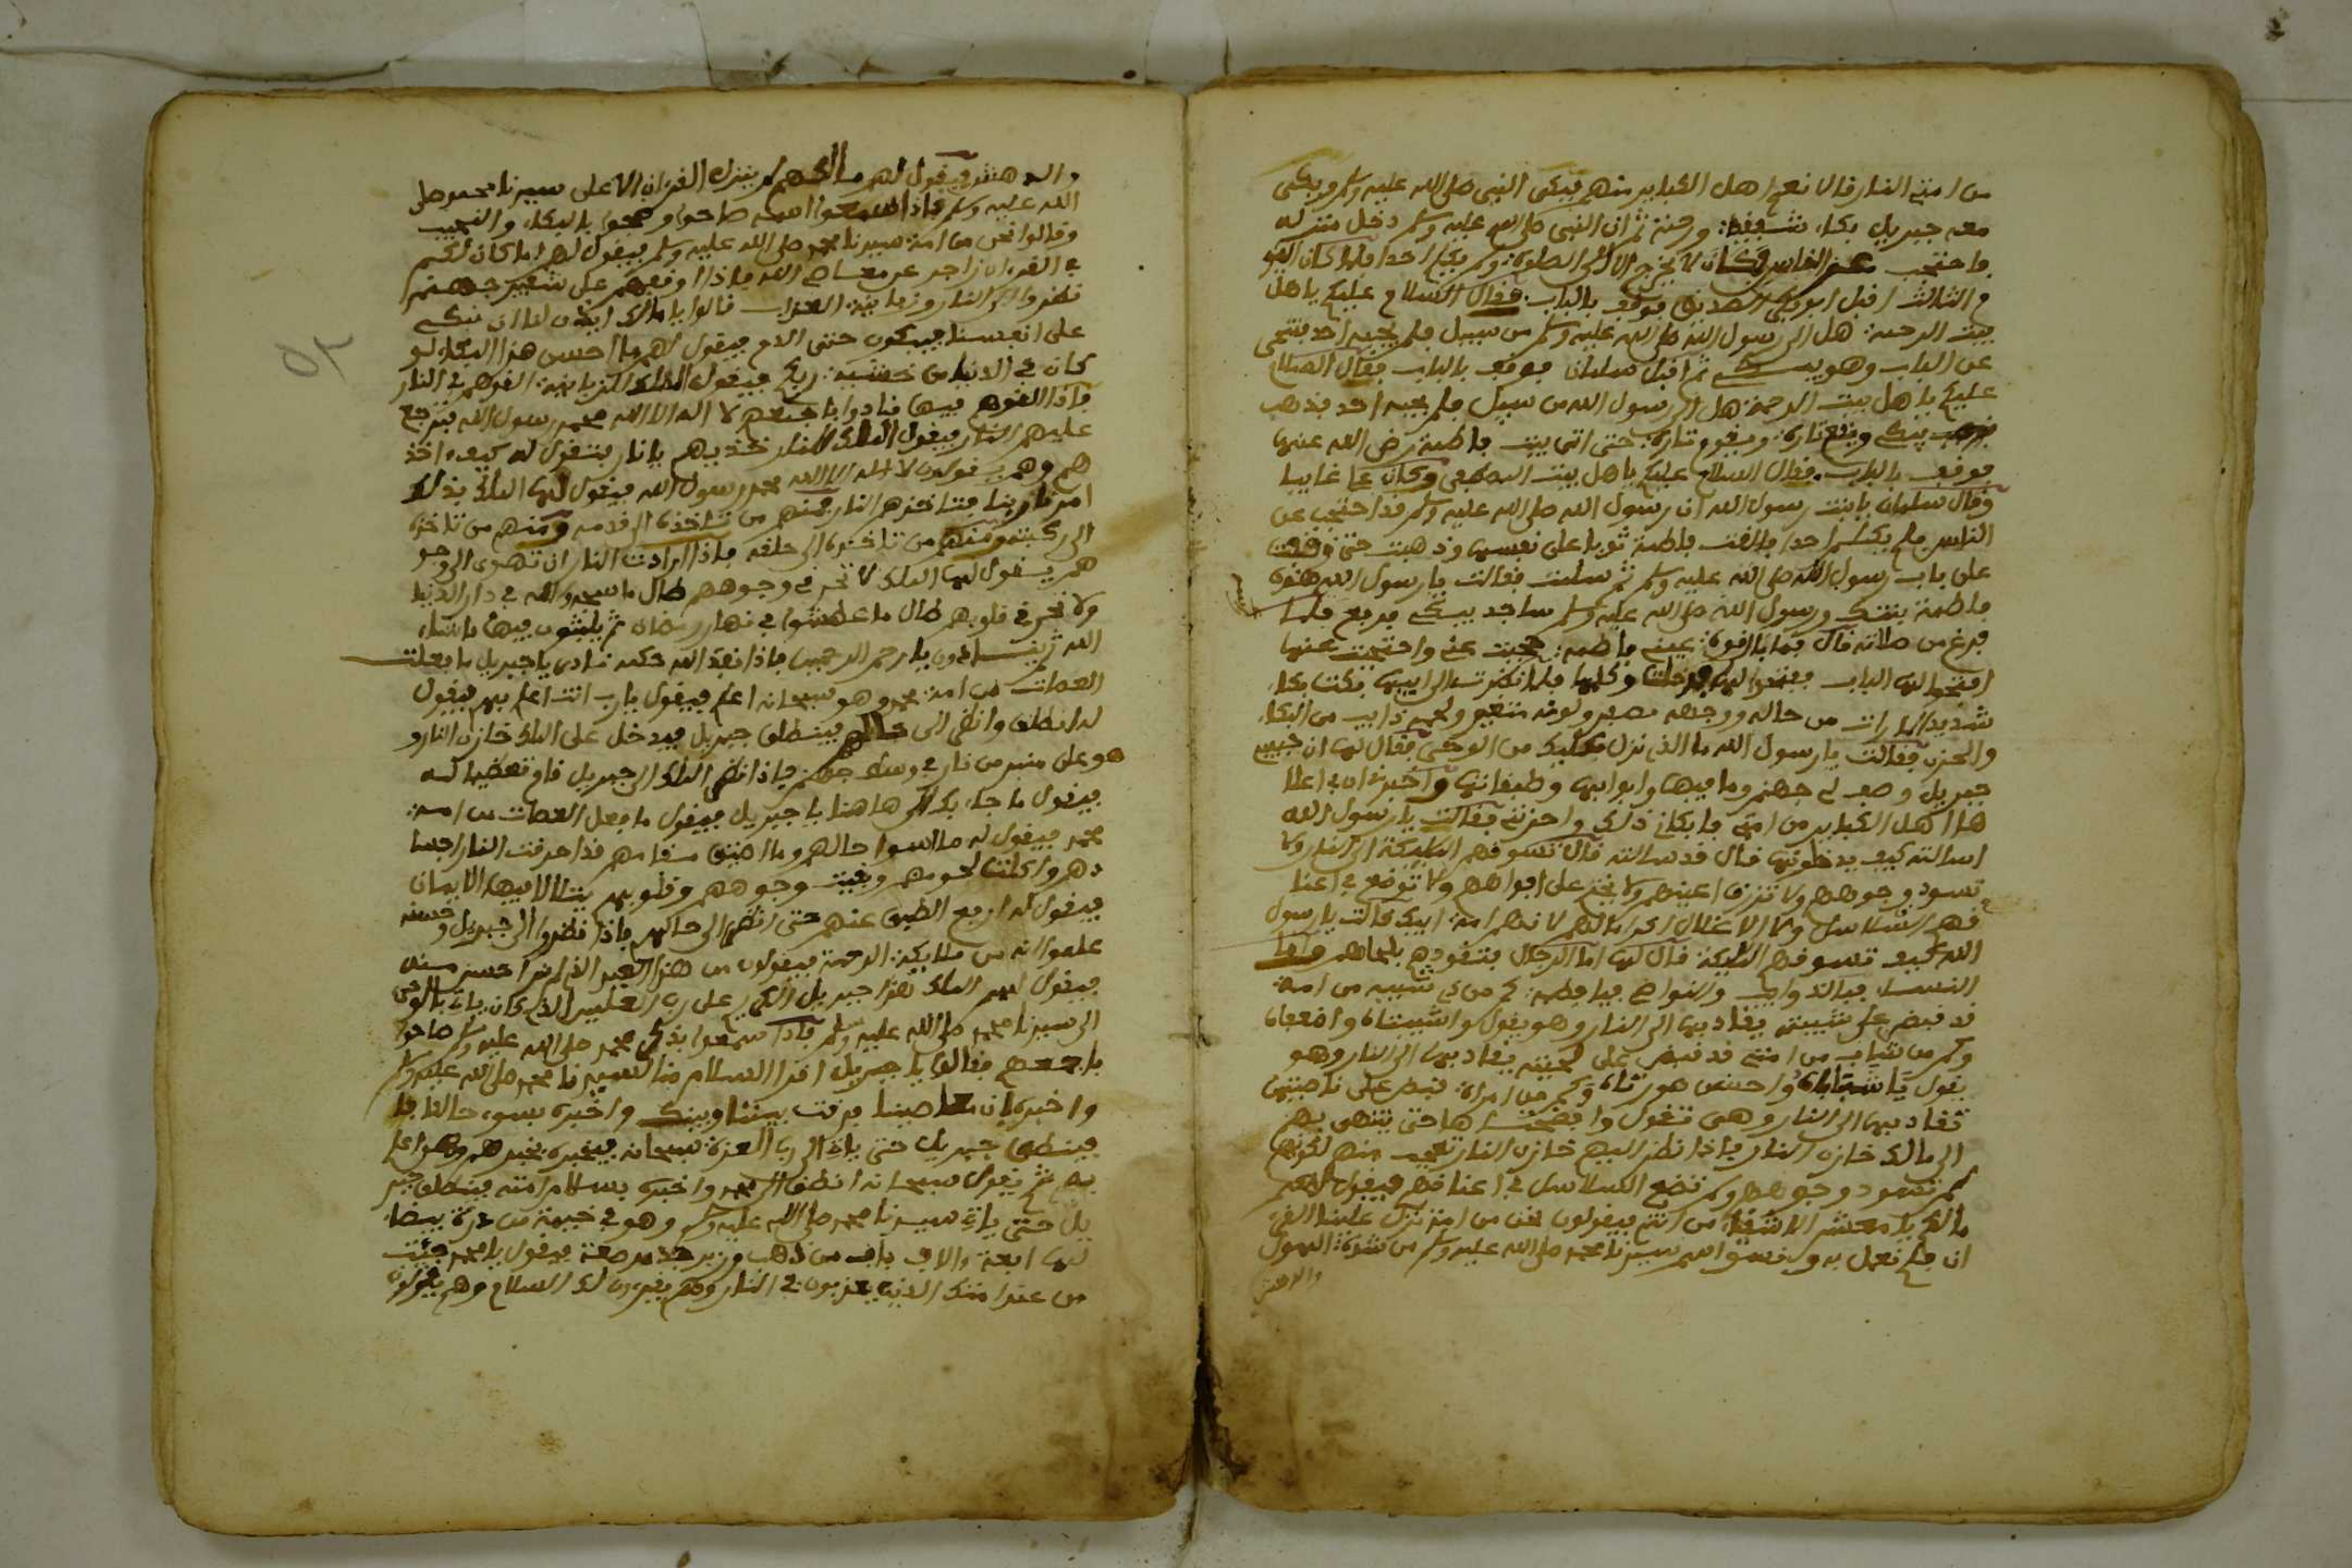 من امتي النار قال نعم اهل الكباير منهم فبكى النبي صلى الله عليه وسلم وبكى
معه جبريل بكاء شفقة ورحمة ثم ان النبي صلى الله عليه وسلم دخل منزله
فاحتجب عن الناس فكان لا يخرج الا الى الصلوة ولم يكلم احدا فلما كان اليو
م الثالث اقبل ابو بكر الصديق فوقف بالباب فقال السلام عليكم يا اهل
بيت الرحمة هل الى رسول الله صلى الله عليه وسلم من سبيل فلم يجبه احد فتنحى
عن الباب وهو يبكي ثم اقبل سلمان فوقف بالباب فقال السلام
عليكم يا اهل بيت الرحمة هل الى رسول الله من سبيل فلم يجبه احد فذهب
يبكي ويقع تارة ويقوم تارة حتى اتى بيت فاطمة رضي الله عنها
فوقف بالباب فقال السلام عليكم يا اهل بيت المصطفى وكان علي غايبا
وقال سلمان يا بنت رسول الله ان رسول الله صلى الله عليه وسلم قد احتجب عن
الناس فلم يكلم احدا فالفت فاطمة ثوبا على نفسها وذهبت حتى وقفت
على باب رسول الله صلى الله عليه وسلم ثم سلمت فقالت يا رسول الله هذه
فاطمة بنتك ورسول الله صلى الله عليه وسلم ساجد يبكي فرفع فلما
فرغ من صلاته قال فما بال قرة عيني فاطمة حجبت عني واحتجبت عنها
افتحوا لها الباب ففتحوا لها فدخلت فلما نظرت الى ابيها بكت بكاء
شديدا لما رات من حاله ووجهه مصفر ولونه متغير ولحمه ذايب من البكاء
والحزن فقالت يا رسول الله ما الذي نزل عليك من الوحي فقال لها ان حبيبي
جبريل وصف لي جهنم وما فيها وابوابها وطبقاتها واخبرني ان في اعلا
ها اهل الكباير من امتي فابكاني ذلك واحزنني فقالت يا رسول الله
اسالته كيف يدخلونها قال قد سالته قال تسوقهم الملايكة الى النار ولا
تسود وجوههم ولا تزرق اعينهم ولا يختم على افواههم ولا توضع في اعنا
قهم السلاسل ولا الاغلال اكراما لهم لانهم امة ابيك قالت يا رسول
الله كيف تسوقهم الملايكة قال لها اما الرجال فتقودهم بلحاهم واما
النساء فبالذوايب والنواصي فيا فاطمة كم من ذي شيبه من امتي
قد قبض على شيبته يقاد بها الى النار وهو يقول وا شيبتاه وا ضعفاه
وكم من شباب من امتي قد قبض على لحيته يقاد بها الى النار وهو
يقول يا شباباه وا حسن صورتاه وكم من امراة قبض على ناصيتها
تقاد بها الى النار وهي تقول وا فضيحتاها حتى ينتهى بهم
الى مالك خازن النار فاذا نظر اليهم خازن النار تعجب منهم لكونهم
لم تسود وجوههم ولم توضع السلاسل في اعناقهم فيقول لهم
مالك يا معشر الاشقياء من انتم فيقولون نحن من امة نزل علينا القرء
ان فلم نعمل به ونسوا اسم سيدنا محمد صلى الله عليه وسلم من شدة الهول
والدهش
والدهش فيقول لهم مالك لم ينزل القرءان الا على سيدنا محمد صلى
الله عليه وسلم فاذا سمعوا اسمه صاحوا وضجوا بالبكاء والنحيب
وقالوا نحن من امة سيدنا محمد صلى الله عليه وسلم فيقول لهم اما كان لكم
في القرءان زاجر عن معاصي الله فاذا اوقفهم على شفير جهنم
نظروا الى النار وزبانية العذاب قالوا يا مالك ايذن لنا ان نبكي
على انفسنا فيبكون حتى الدم فيقول لهم ما احسن هذا البكاء لو
كان في الدنيا من خشية ربكم فيقول الملك للزبانية القوهم في النار
فاذا القوهم فيها نادوا باجمعهم لا اله الا الله محمد رسول الله فترجع
عليهم النار فيقول الملك للنار خذيهم يا نار فتقول له كيف اخذ
هم وهم يقولون لا اله الا الله محمد رسول الله فيقول لها الملك بذلك
امرنا ربنا فتاخذهم النار فمنهم من تاخذه الى قدمه ومنهم من تاخذه
الى ركبته ومنهم من تاخذه الى حلقه فاذا ارادت النار ان تهوى الى وجو
ههم يقول لها الملك لا تحرقي وجوههم طال ما سجدوا لله في دار الدنيا
ولا تحرقي قلوبهم طال ما عطشوا في نهار رمضان ثم يلبثون فيها ما شاء
الله ثم ينادون يا ارحم الرحمين فاذا نفذ الله حكمه نادى يا جبريل ما فعلت
العصات من امة محمد وهو سبحانه اعلم فيقول يا رب انت اعلم بهم فيقول
له انطلق وانظر الى حالهم فينطلق جبريل فيدخل على الملك خازن النار و
هو على منبر من نار في وسط جهنم فاذا نظر الملك الى جبريل قام تعظيما له
فيقول ما جاء بك الى هاهنا يا جبريل فيقول ما فعل العصات من امة
محمد فيقول له ما اسوا حالهم وما اضيق مقامهم قد احرقت النار اجسا
دهم واكلت لحومهم وبقيت وجوههم وقلوبهم يتلالا فيها الايمان
فيقول له ارفع الطبق عنهم حتى انظر الى حالهم فاذا نظروا الى جبريل وحسنه
علموا انه من ملايكة الرحمة فيقولون من هذا العبد الذي لم نر احسن منه
فيقول لهم الملك هذا جبريل الكريم على رب العلمين الذي كان ياتي بالوحي
الى سيدنا محمد صلى الله عليه وسلم فاذا سمعوا بذكر محمد صلى الله عليه وسلم صاحوا
باجمعهم فقالوا يا جبريل اقرا السلام منا لسيدنا محمد صلى الله عليه وسلم
واخبره ان معاصينا فرقت بيننا وبينك واخبره بسوء حالنا
فينطلق جبريل حتى ياتي الى رب العزة سبحانه فيخبره بخبرهم وهو اعلم
بهم ثم يقول سبحانه انطلق الى محمد واخبره بسلام امته فينطلق جبر
يل حتى ياتي سيدنا محمد صلى الله عليه وسلم وهو في خيمة من درة بيضاء
لها اربعة والاف باب من ذهب وزبرجد مرصعة فيقول يا محمد جئت
من عند امتك الذين يعذبون في النار وهم يقرءون لك السلام وهم يقولون